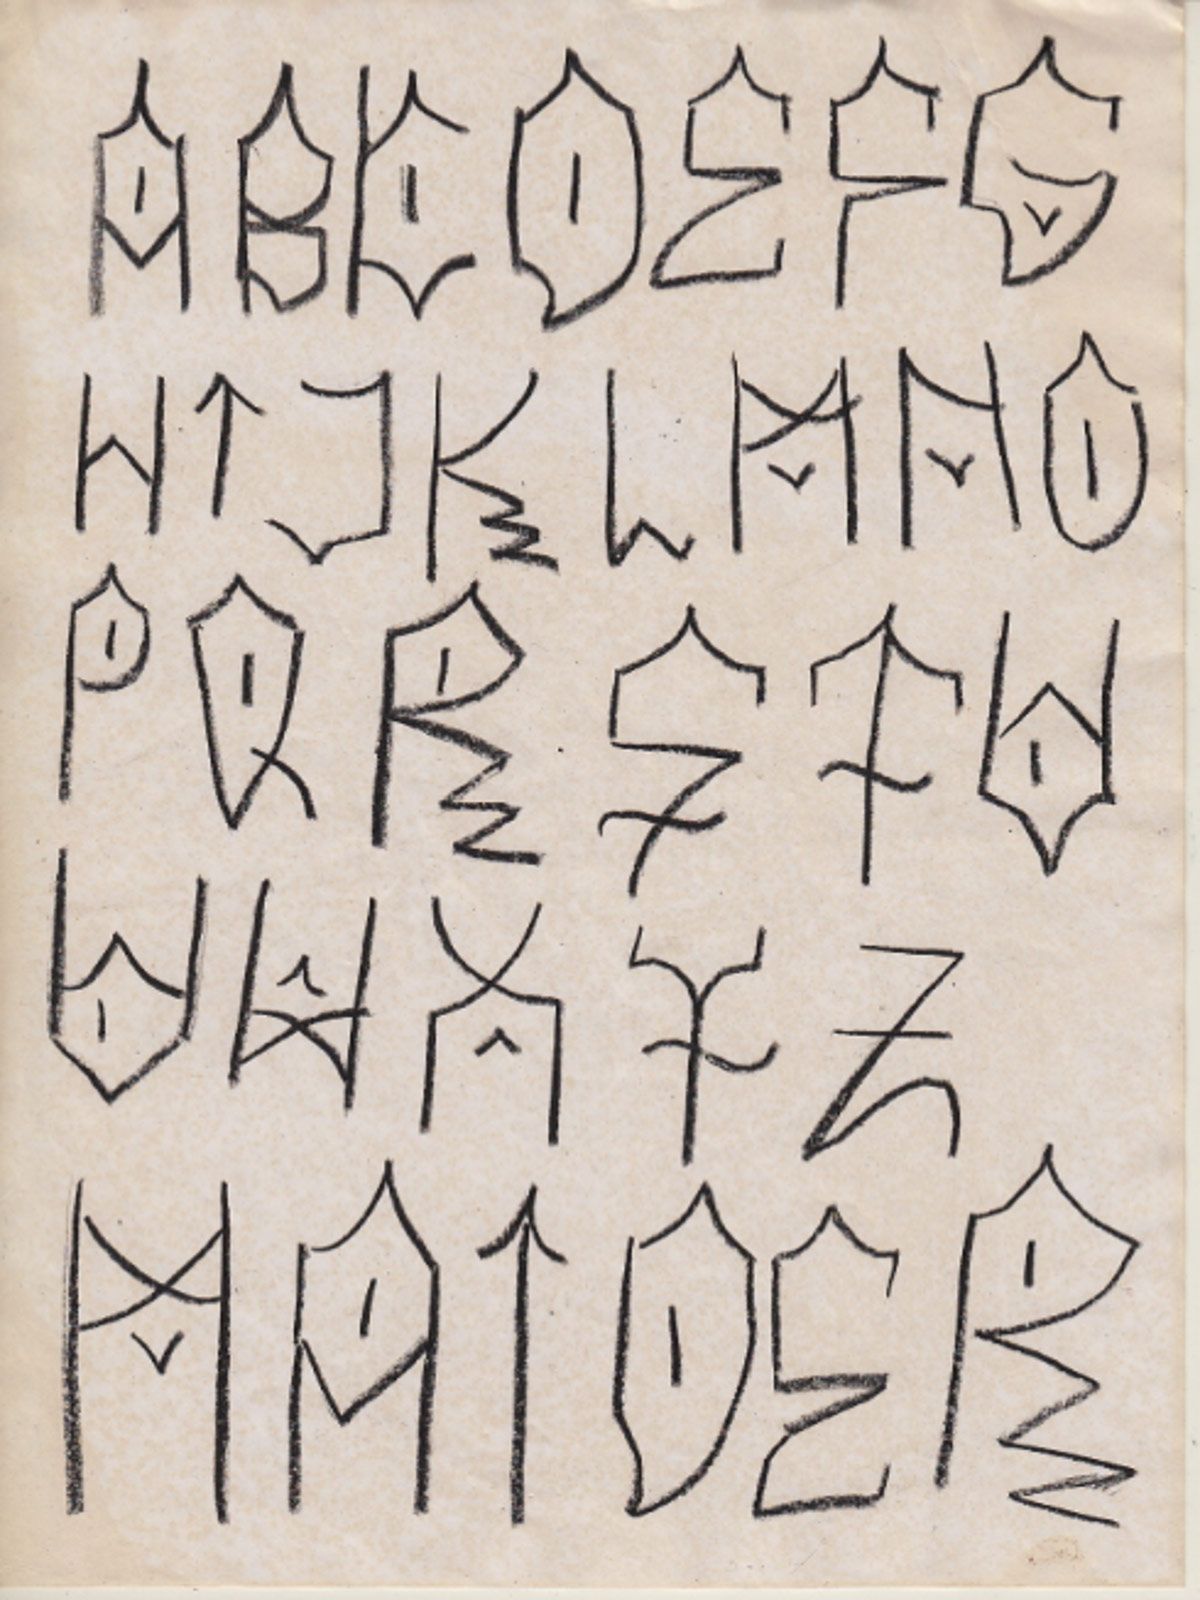 ABCDEFG
HIJKLMNO
PQRSTU
VWXYZ
MAIDER